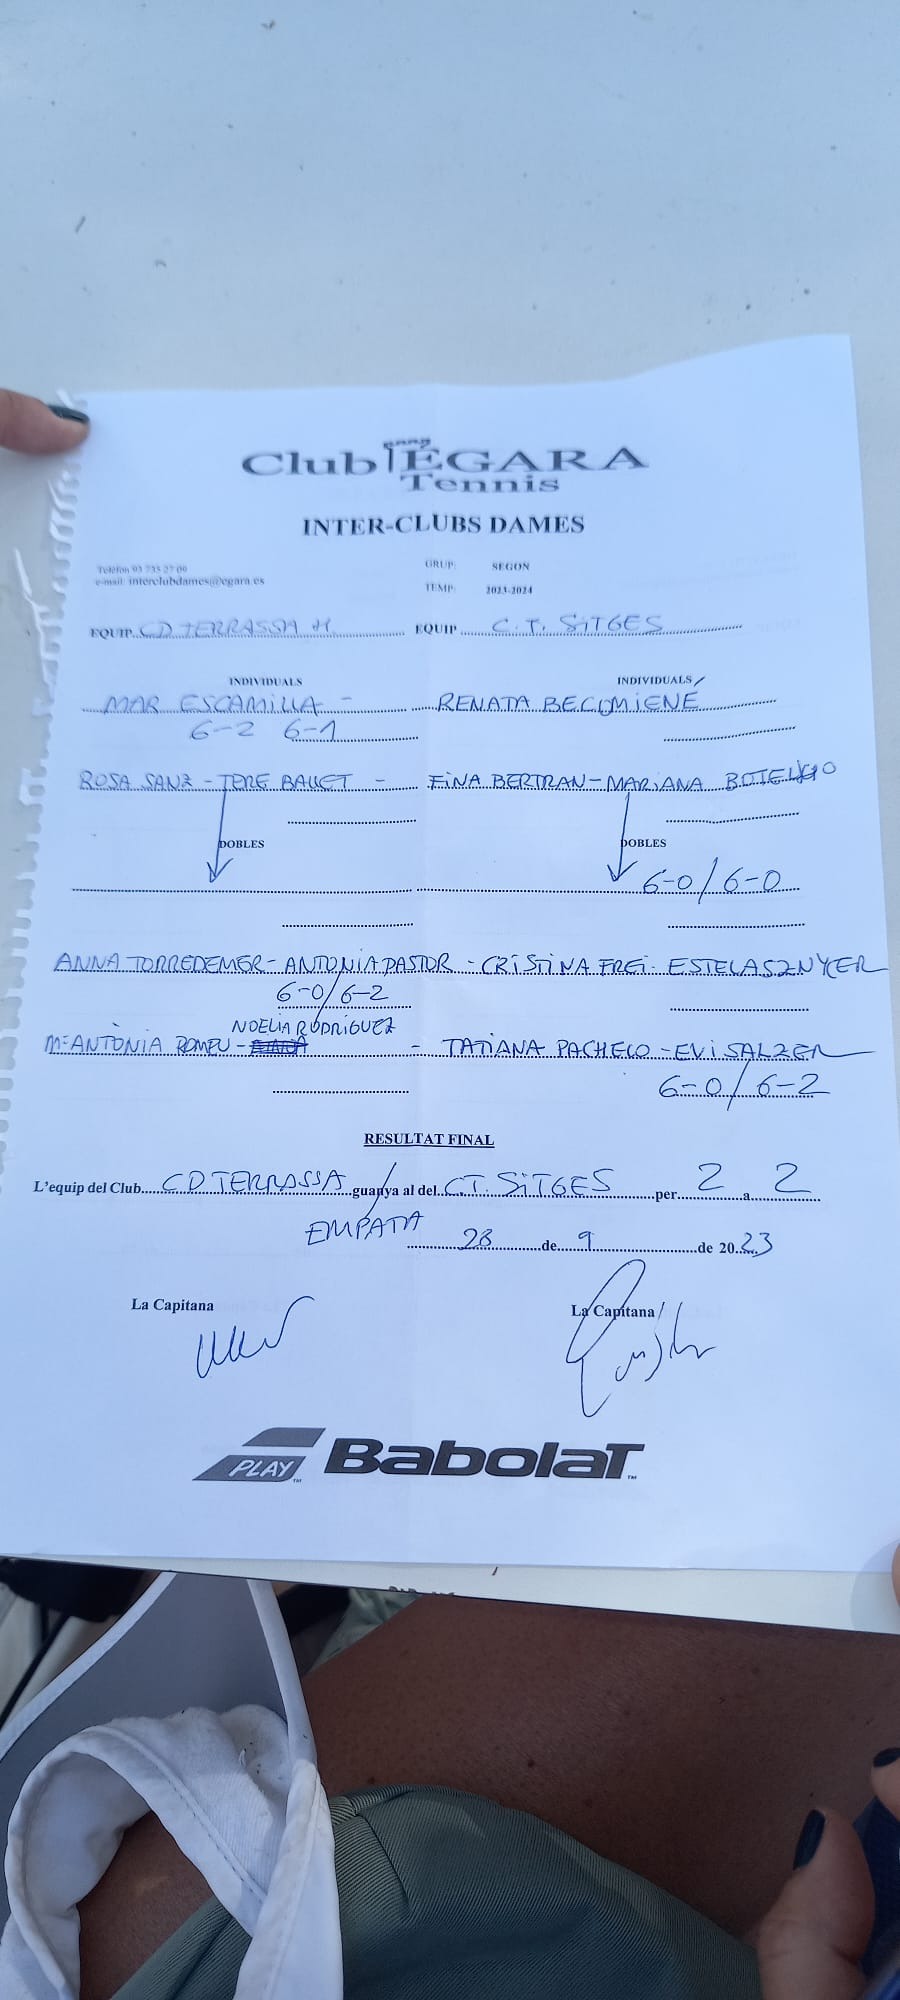 Club ÉGARA
Tennis
INTER-CLUBS DAMES
Telèfon 93 735 27 00
e-mail: interclubdames@egara.es
GRUP: SEGON
TEMP: 2023-2024
EQUIP CD TERRASSA H EQUIP C.T. SITGES
INDIVIDUALS INDIVIDUALS
MAR ESCAMILLA - RENATA BECUMIENE
6-2 6-1
ROSA SANZ - TERE BALLET - FINA BERTRAN - MARIANA BOTELHO
DOBLES DOBLES
6-0/6-0
ANNA TORREDEMER - ANTONIA PASTOR - CRISTINA FREI - ESTELA SZNYCER
6-0/6-2
NOELIA RODRIGUEZ
Mª ANTÒNIA ROMEU - - TATIANA PACHECO - EVI SALZER
6-0/6-2
RESULTAT FINAL
L'equip del Club CD TERRASSA guanya al del CT. SITGES per 2 a 2
EMPATA
28 de 9 de 2023
La Capitana La Capitana
PLAY BABOLAT